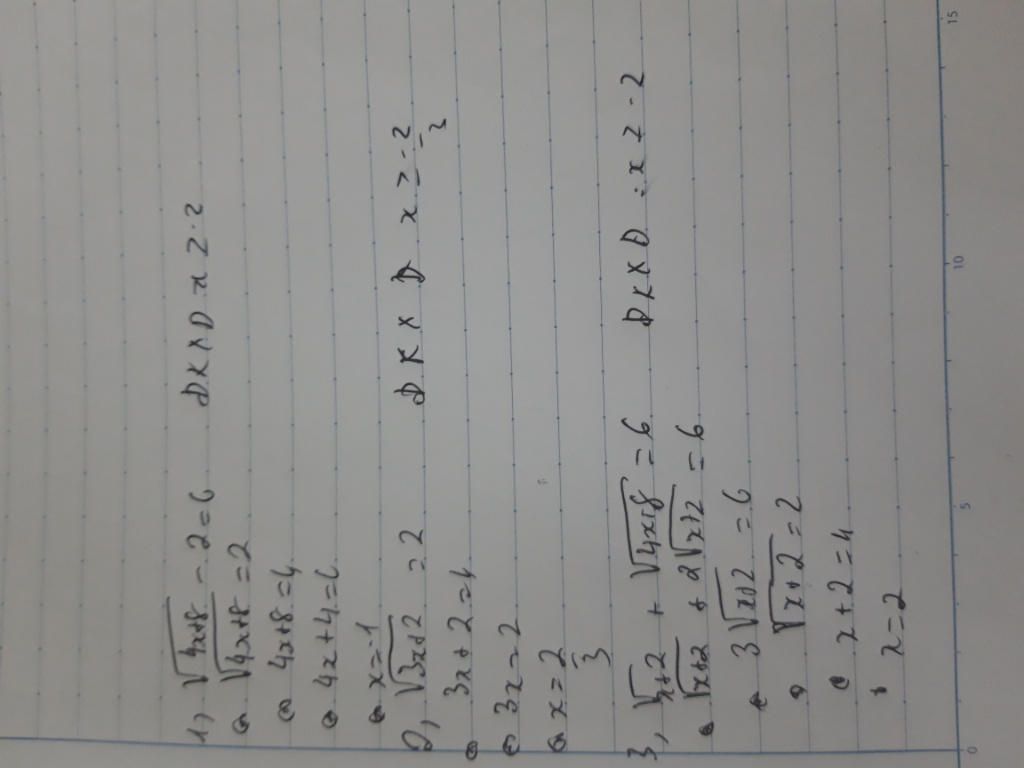 1, √4x+8 - 2 = 6 ĐKXĐ x ≥ -2
⇔ √4x+8 = 2
⇔ 4x+8=4
⇔ 4x+4=0
⇔ x=-1
2, √3x+2 = 2 ĐKXĐ x ≥ -2/3
⇔ 3x+2=4
⇔ 3x=2
⇔ x=2/3
3, √x+2 + √4x+8 = 6 ĐKXĐ : x ≥ -2
⇔ √x+2 + 2√x+2 = 6
⇔ 3√x+2 = 6
⇔ √x+2 = 2
⇔ x+2=4
x=2
0 5 10 15